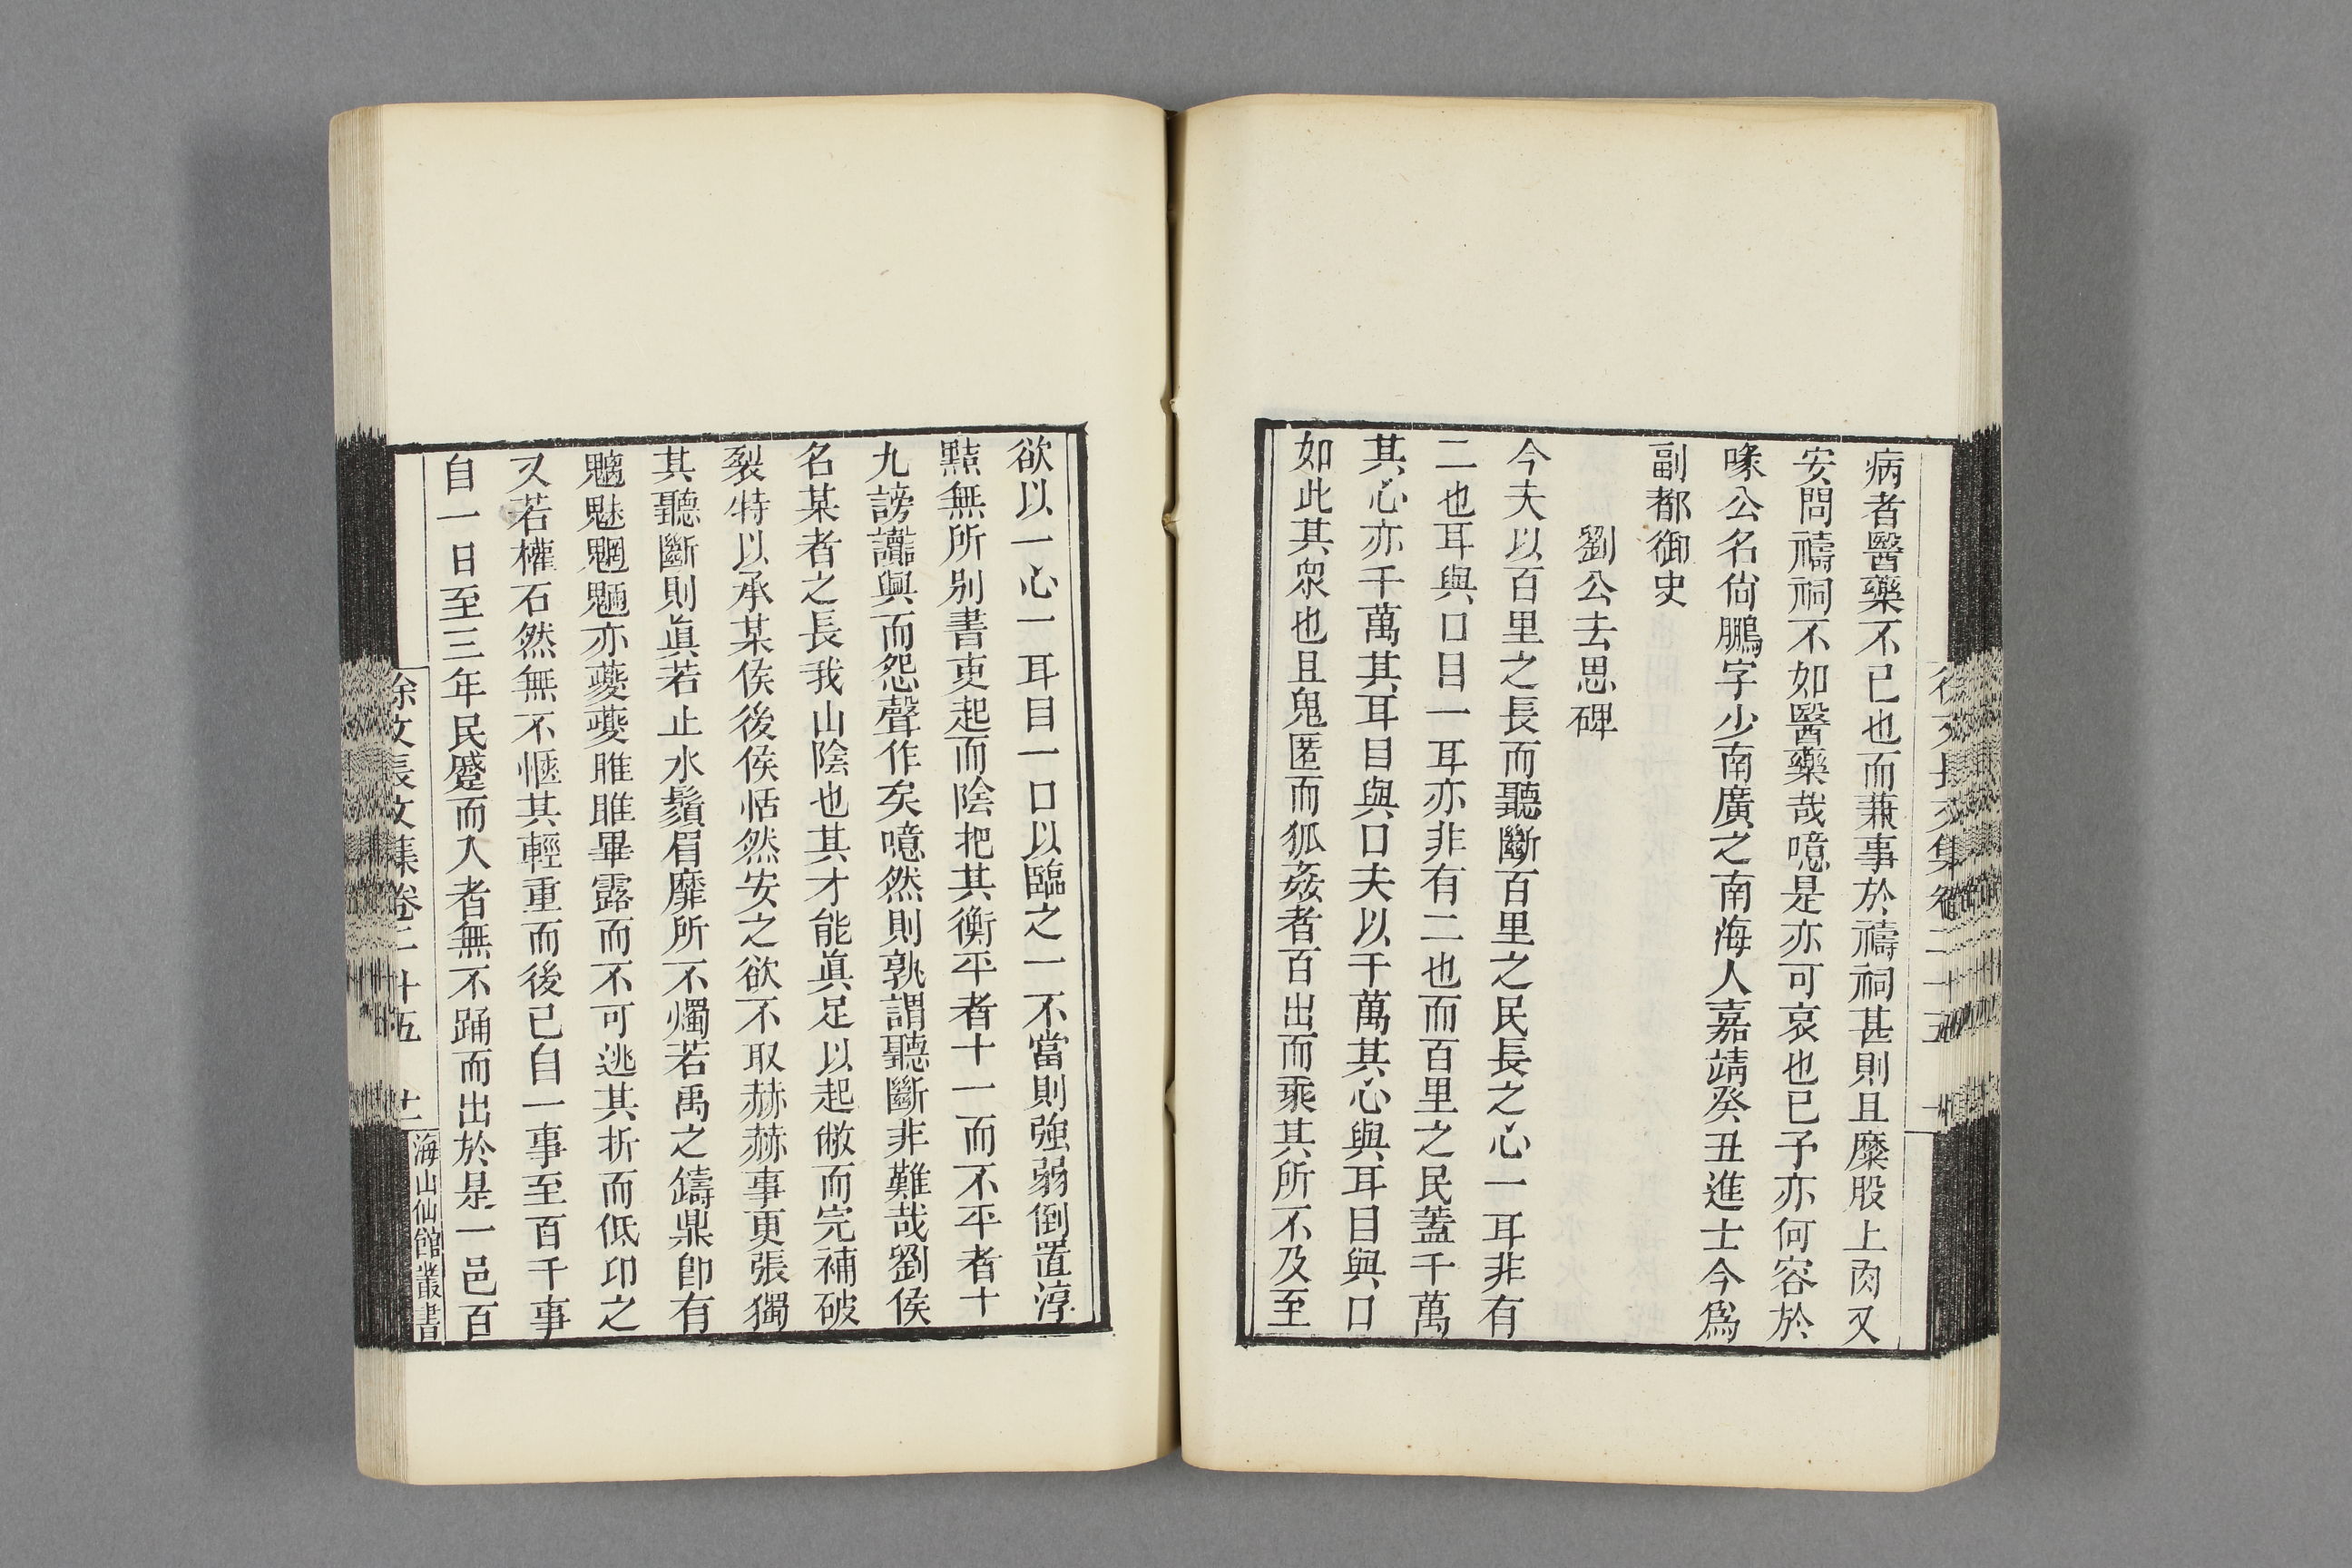 病者醫藥不已也而兼事於禱祠甚則且糜股上肉又
安問禱祠不如醫藥哉噫是亦可哀也已予亦何容於
喙公名尙鵬字少南廣之南海人嘉靖癸丑進士今爲
副都御史
劉公去思碑
今夫以百里之長而聽斷百里之民長之心一耳非有
二也耳與口目一耳亦非有二也而百里之民蓋千萬
其心亦千萬其耳目與口夫以千萬其心與耳目與口
如此其衆也且鬼匿而狐姦者百出而乘其所不及至
欲以一心一耳目一口以臨之一不當則強弱倒置淳
黠無所別書吏起而陰把其衡平者十一而不平者十
九謗讟興而怨聲作矣噫然則孰謂聽斷非難哉劉侯
名某者之長我山陰也其才能眞足以起敝而完補破
裂特以承某侯後侯恬然安之欲不取赫赫事更張獨
其聽斷則眞若止水鬚眉靡所不燭若禹之鑄鼎卽有
魑魅魍魎亦夔夔睢睢畢露而不可逃其折而低卬之
又若權石然無不愜其輕重而後已自一事至百千事
自一日至三年民蹙而入者無不踊而出於是一邑百
徐文長文集卷二十五 廿一
海山仙館叢書